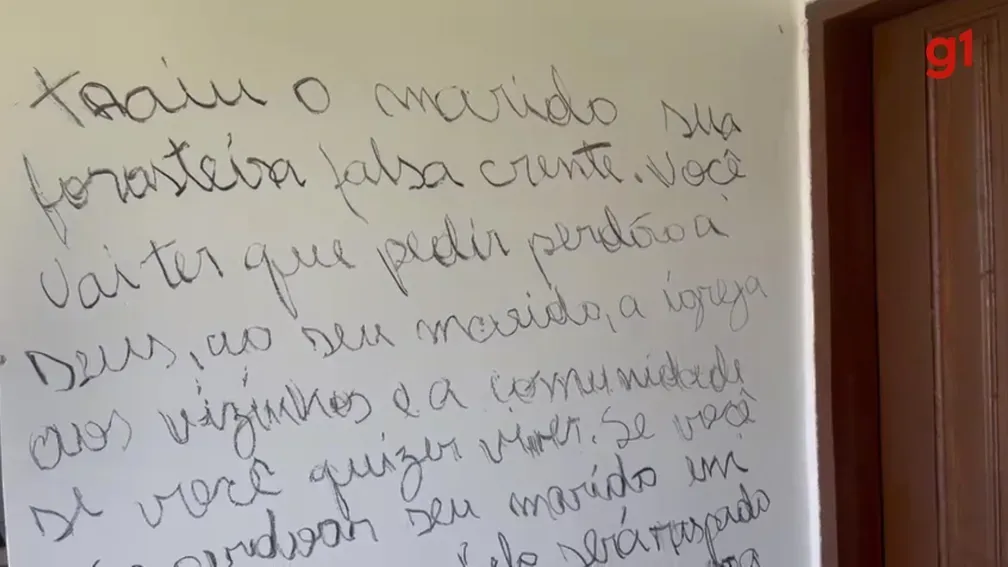 g1
traiu o marido sua
forasteira falsa crente. Você
vai ter que pedir perdão a
Deus, ao seu marido, a igreja
aos vizinhos e a comunidade
se você quizer viver. Se você
perdoar seu marido em
será raspado